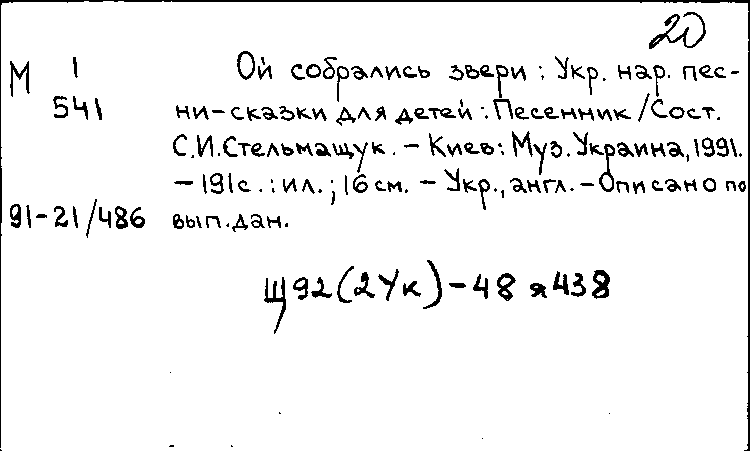 20
М 1
541
Ой собрались звери : Укр. нар. пес-
ни-сказки для детей : Песенник / Сост.
С.И.Стельмащук. – Киев : Муз. Украина, 1991.
– 191с. : ил. ; 16 см. – Укр., англ. – Описано по
91-21/486 вып. дан.
Щ92(2Ук)-48 я438